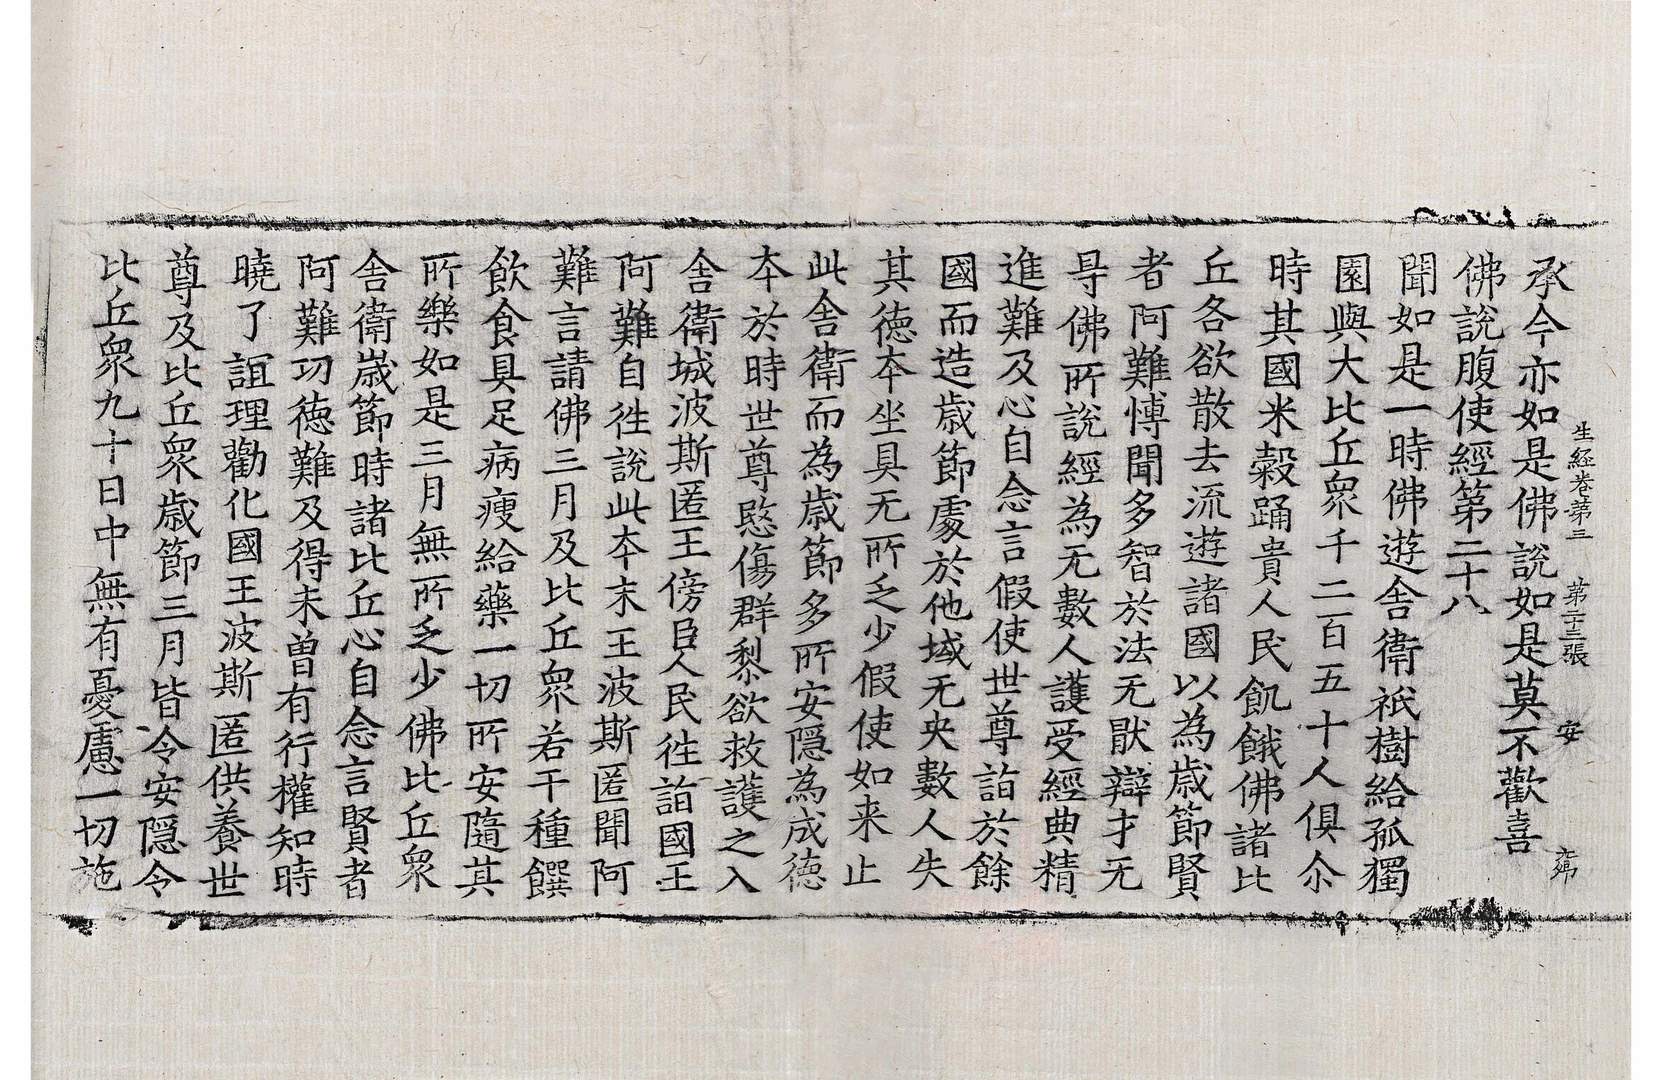 生経卷第三 第二十三張 安
承今亦如是佛說如是莫不歡喜
佛說腹使經第二十八
聞如是一時佛遊舍衛祇樹給孤獨
園與大比丘衆千二百五十人俱尒
時其國米糓踊貴人民飢餓佛諸比
丘各欲散去流遊諸國以為歳節賢
者阿難愽聞多智於法无猒辯才无
㝵佛所說經為无數人護受經典精
進難及心自念言假使世尊詣於餘
國而造歳節處於他域无央數人失
其徳夲坐具无所乏少假使如来止
此舍衛而為歳節多所安隱為成徳
夲於時世尊愍傷群黎欲救護之入
舍衛城波斯匿王傍臣人民徃詣國王
阿難自徃說此夲末王波斯匿聞阿
難言請佛三月及比丘衆若干種饌
飲食具足病瘦給藥一切所安隨其
所樂如是三月無所乏少佛比丘衆
舍衛歳節時諸比丘心自念言賢者
阿難功徳難及得未曽有行權知時
曉了誼理勸化國王波斯匿供養世
尊及比丘衆歳節三月皆令安隱令
比丘衆九十日中無有憂慮一切施